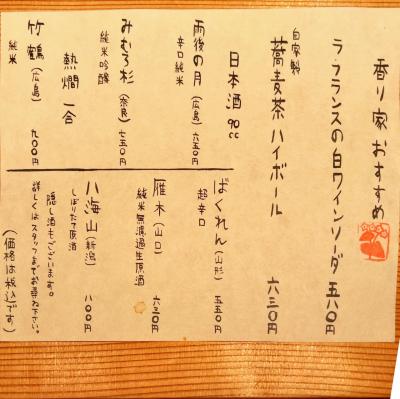 香り家 おすすめ
ラ・フランスの白ワインソーダ 五八〇円
自家製
蕎麦茶ハイボール 六三〇円
日本酒 90cc
雨後の月(広島) 六五〇円
辛口純米
みむろ杉(奈良) 七五〇円
純米吟醸
熱燗 一合
竹鶴(広島) 九〇〇円
純米
ばくれん(山形) 五五〇円
超辛口
雁木(山口) 六三〇円
純米無濾過生原酒
八海山(新潟) 八〇〇円
しぼりたて原酒
隠し酒もございます。
詳しくはスタッフまでお尋ね下さい。
(価格は税込です)